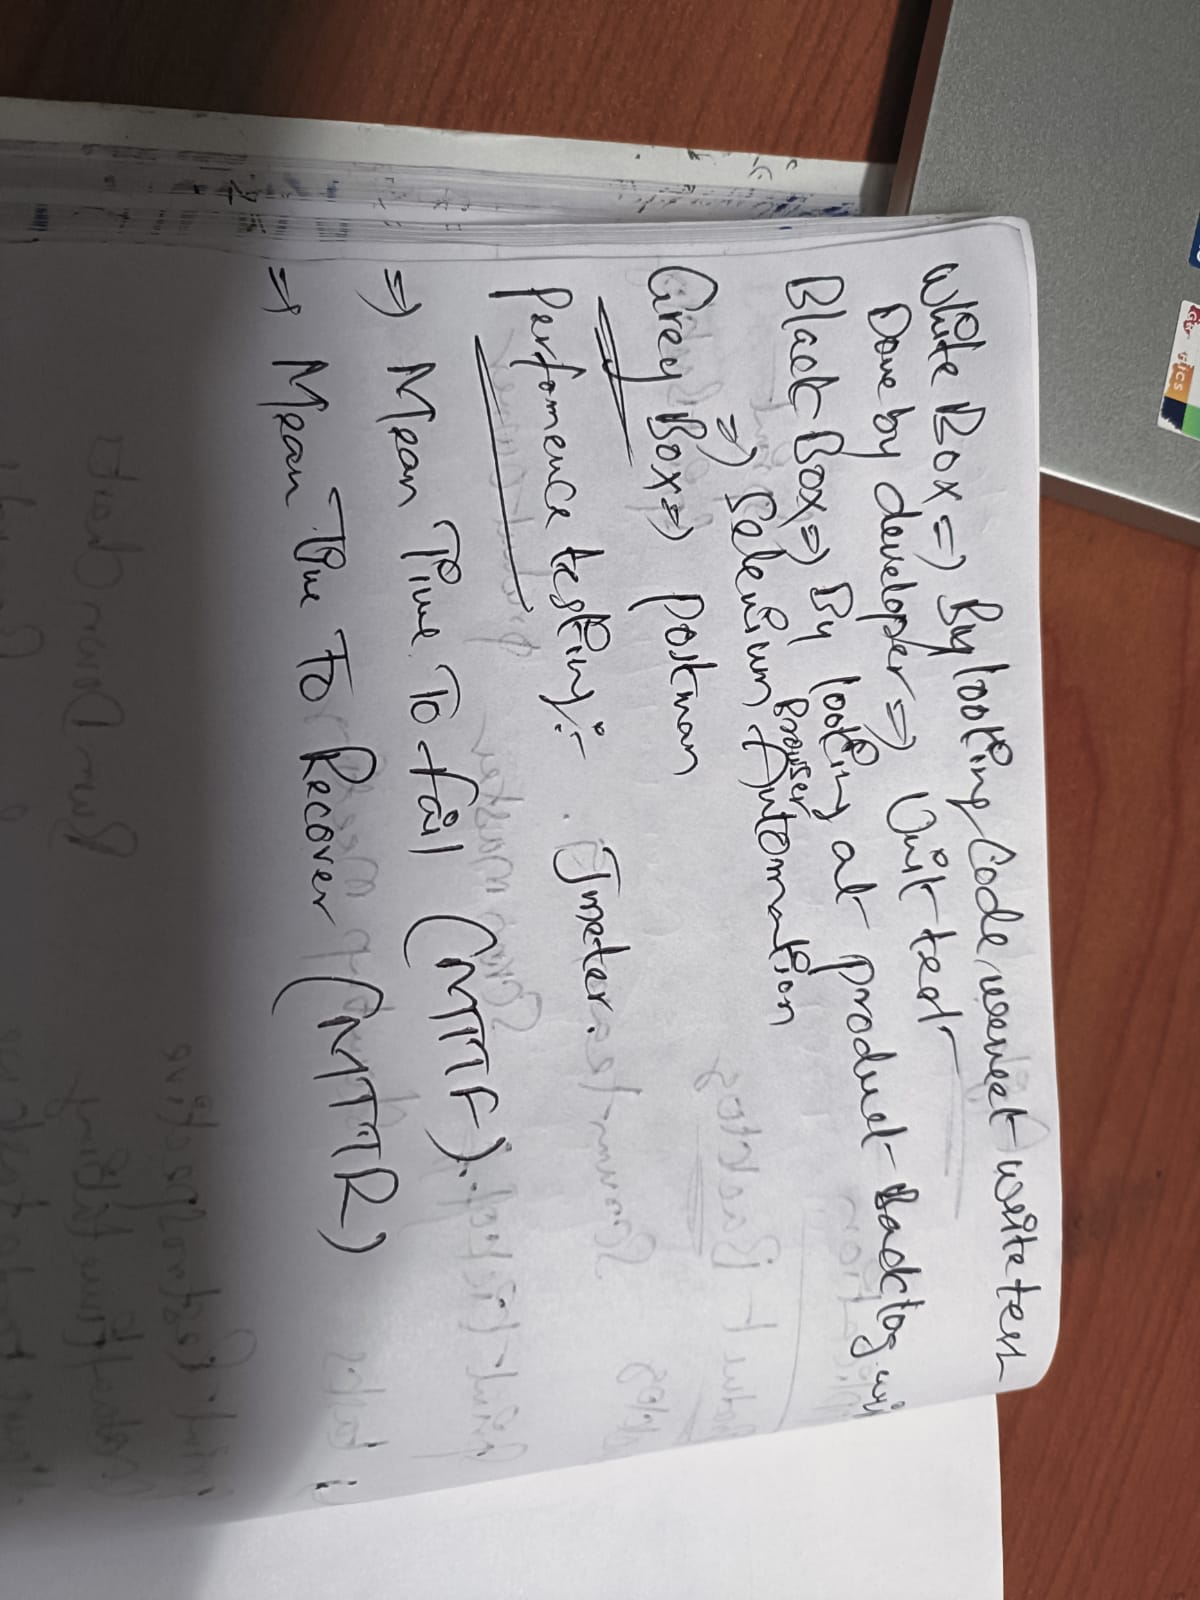 ICS
White Box => By looking Code, write test
Done by developer => Unit test
Black Box => By looking at product Backlog
=> Selenium Browser Automation
Grey Box => Postman
Perfomence testing :- Jmeter.
=> Mean Time To fail (MTTF).
=> Mean Time To Recover (MTTR)